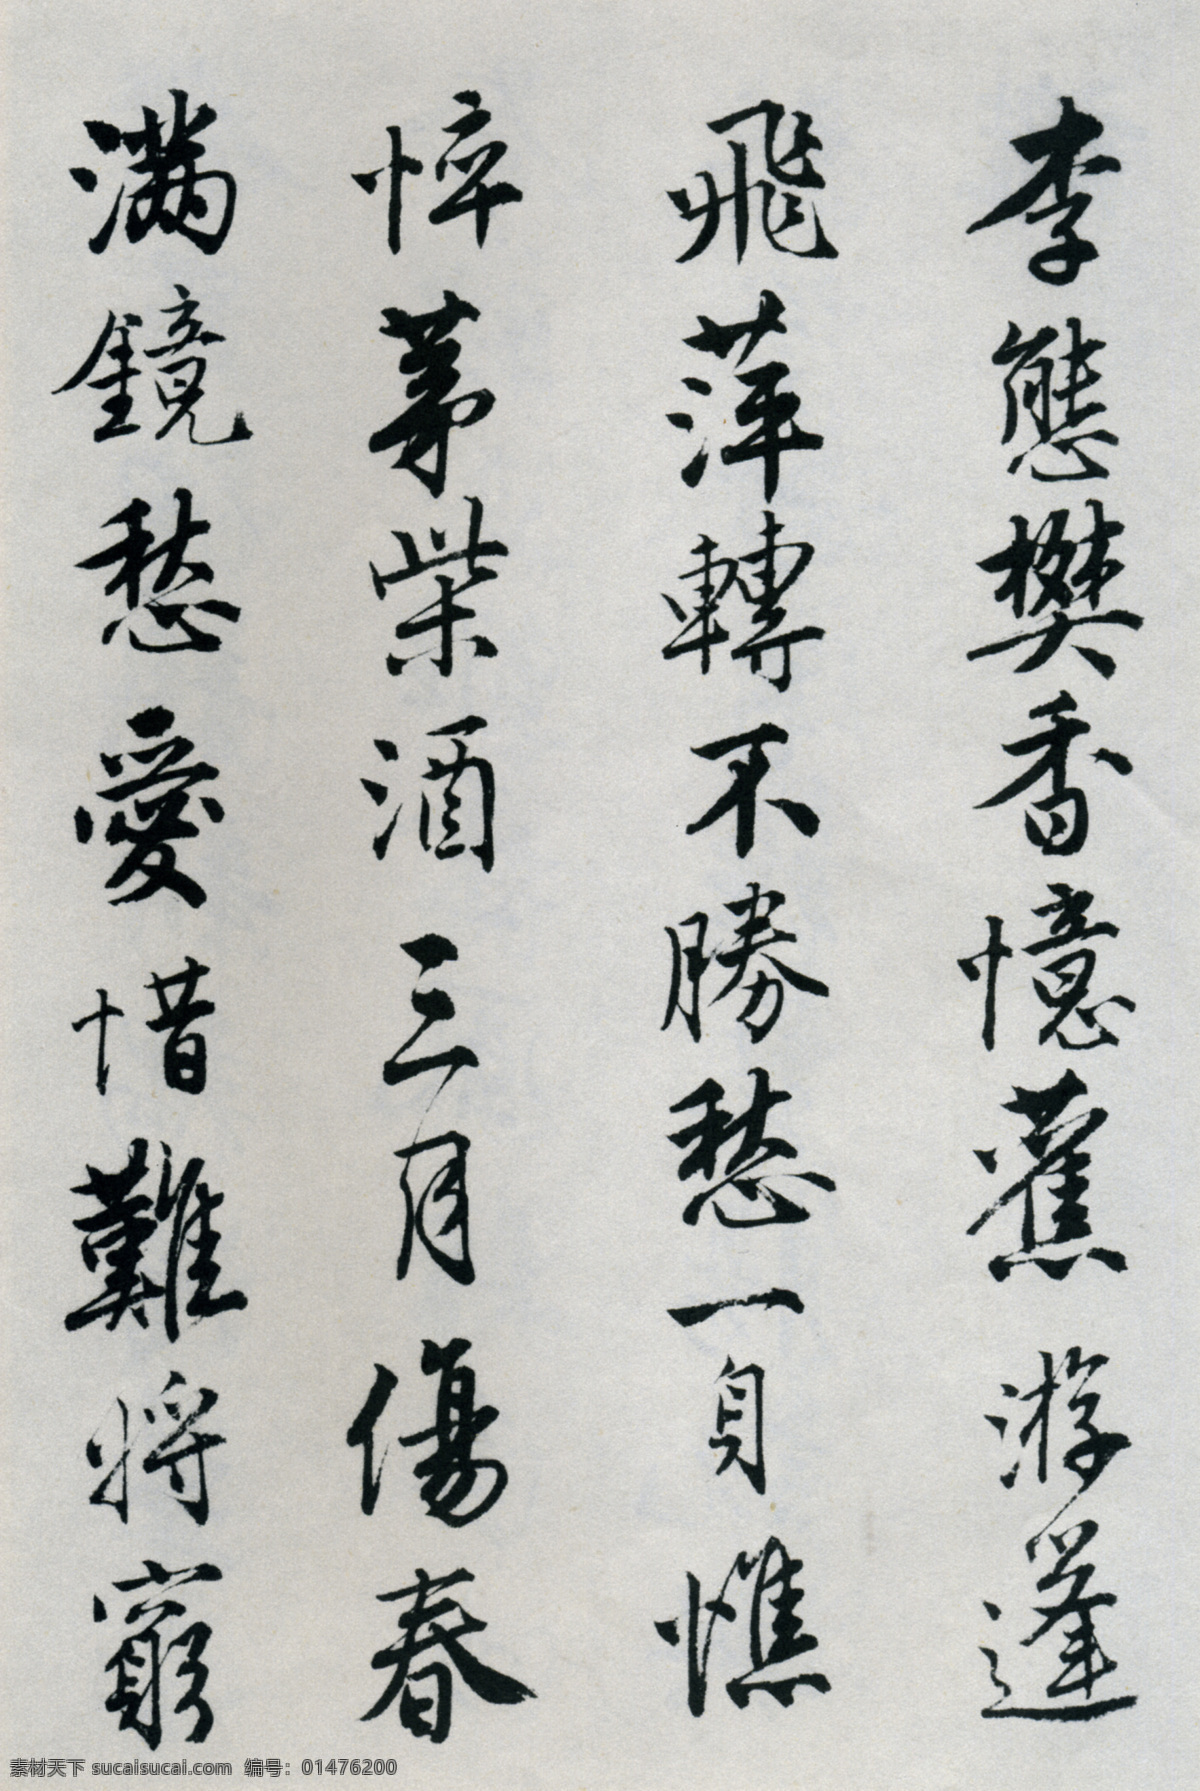 李態樊香憶舊游蓬
飛萍轉不勝愁一身憔
悴茅柴酒三月傷春
滿鏡愁愛惜難將窮
素材天下 sucaisucai.com 编号：01476200